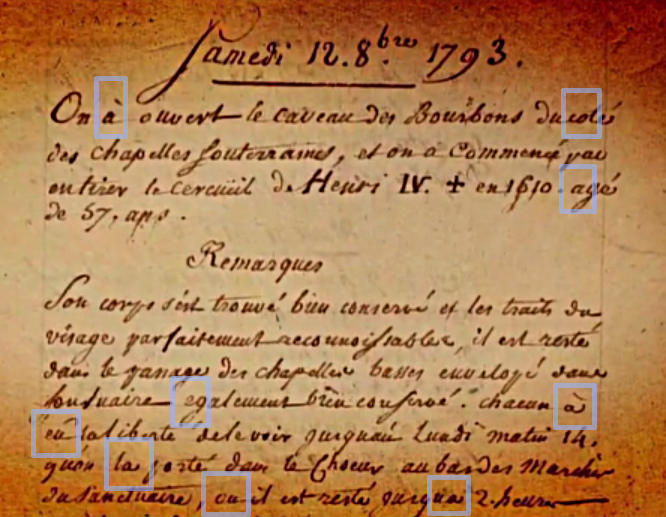 Samedi 12. 8.bre 1793.
On à ouvert le caveau des Bourbons du coté
des chapelles souterraines, et on a commencé par
en tirer le cercüeil de Henri IV. + en 1610. agé
de 57. ans.
Remarques
Son corps s'est trouvé bien conservé et les traits du
visage parfaitement reconnoissables, il est resté
dans le passage des chapelles basses envelopé dans
son suaire egalement bien conservé. chacun à
eu la liberté de le voir jusqu'au Lundi matin 14.
qu'on la porté dans le Choeur au bas des Marches
du sanctuaire, ou il est resté jusqua 2. heures